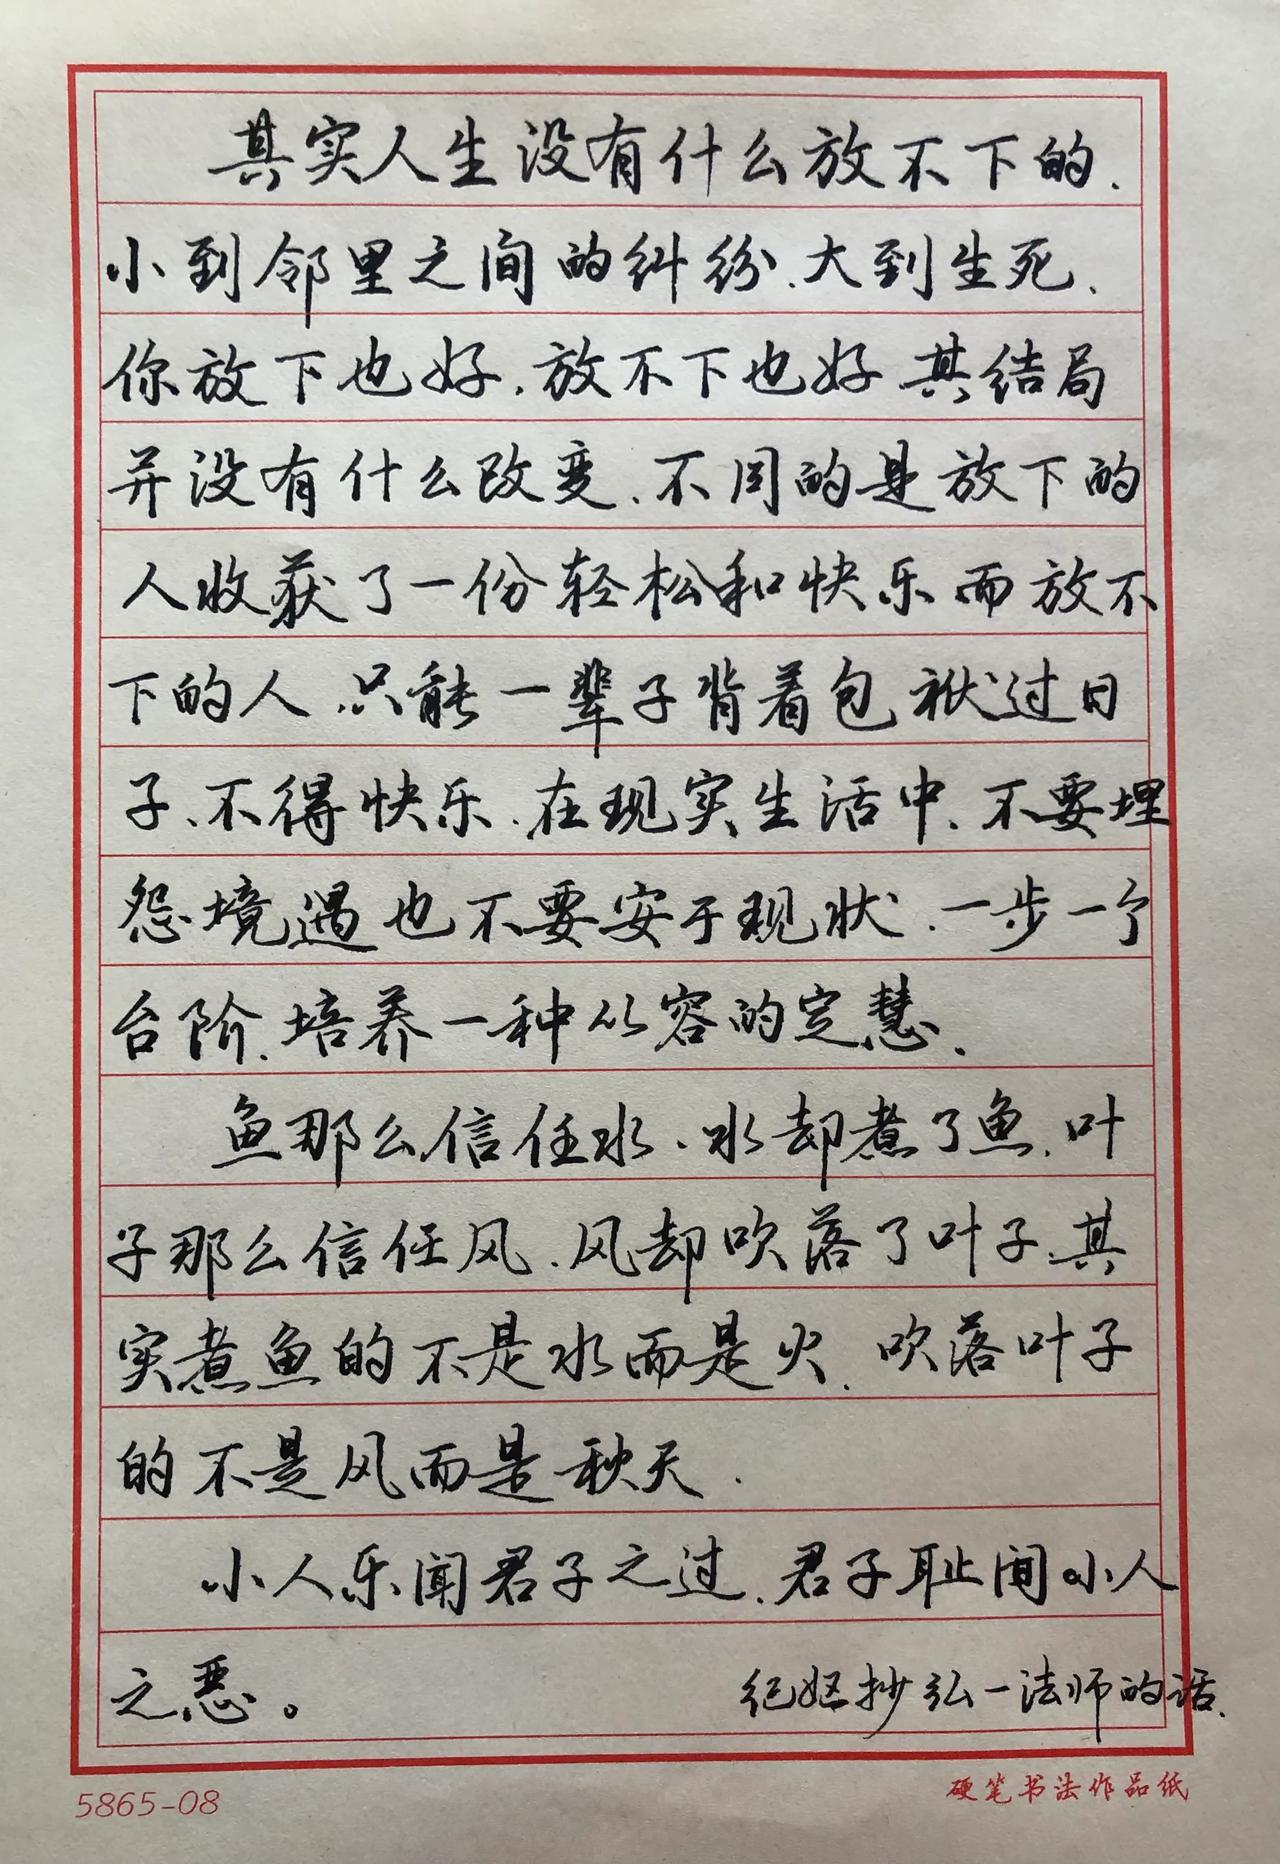 其实人生没有什么放不下的.
小到邻里之间的纠纷.大到生死.
你放下也好.放不下也好.其结局
并没有什么改变.不同的是放下的
人收获了一份轻松和快乐而放不
下的人.只能一辈子背着包袱过日
子.不得快乐.在现实生活中.不要埋
怨境遇也不要安于现状.一步一个
台阶.培养一种从容的定慧.
鱼那么信任水.水却煮了鱼.叶
子那么信任风.风却吹落了叶子.其
实煮鱼的不是水而是火.吹落叶子
的不是风而是秋天.
小人乐闻君子之过.君子耻闻小人
之恶。
纪妪抄弘一法师的话.
5865-08
硬笔书法作品纸